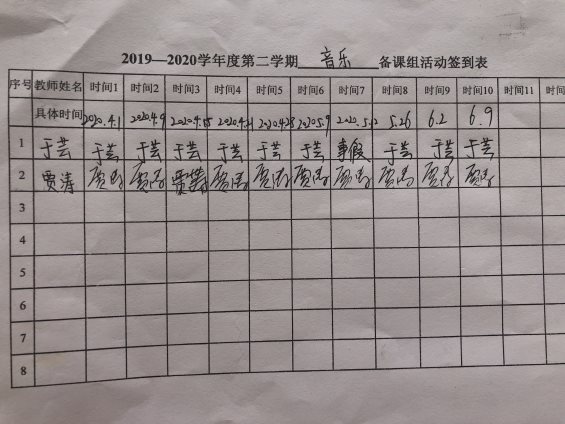 2019—2020学年度第二学期 音乐 备课组活动签到表
序号 教师姓名 时间1 时间2 时间3 时间4 时间5 时间6 时间7 时间8 时间9 时间10 时间11 时间
具体时间 2020.4.1 2020.4.9 2020.4.15 2020.4.21 2020.4.28 2020.5.9 2020.5.12 5.26 6.2 6.9
1 于芸 于芸 于芸 于芸 于芸 于芸 于芸 事假 于芸 于芸 于芸
2 贾涛 贾涛 贾涛 贾涛 贾涛 贾涛 贾涛 贾涛 贾涛 贾涛
3
4
5
6
7
8